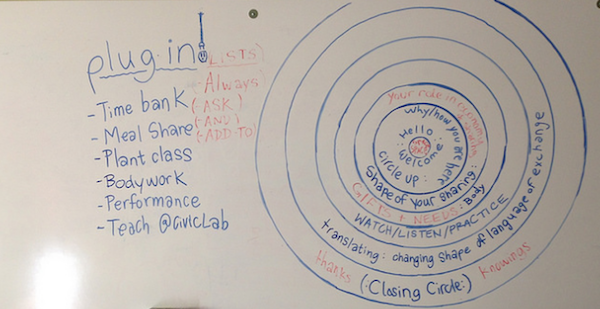 plug·in!
(LISTS)
(·Always)
(·ASK·)
(·AND!)
(·ADD TO)
- Time bank
- Meal Share
- Plant class
- Bodywork
- Performance
- Teach @CivicLab
your role in economy
why/how you are here
Hello
Welcome
circle up:
Shape of your sharing: Body
GIFTS + NEEDS:
WATCH/LISTEN/PRACTICE
translating: changing shape of language or exchange
thanks (·Closing Circle·) knowings